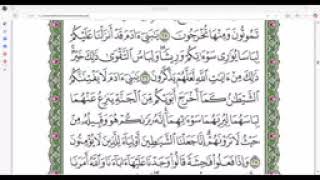 تَمُوتُونَ وَمِنْهَا تُخْرَجُونَ ٢٥ يَٰبَنِىٓ ءَادَمَ قَدْ أَنزَلْنَا عَلَيْكُمْ
لِبَاسًا يُوَٰرِى سَوْءَٰتِكُمْ وَرِيشًا وَلِبَاسُ ٱلتَّقْوَىٰ ذَٰلِكَ خَيْرٌ
ذَٰلِكَ مِنْ ءَايَٰتِ ٱللَّهِ لَعَلَّهُمْ يَذَّكَّرُونَ ٢٦ يَٰبَنِىٓ ءَادَمَ لَا يَفْتِنَنَّكُمُ
ٱلشَّيْطَٰنُ كَمَآ أَخْرَجَ أَبَوَيْكُم مِّنَ ٱلْجَنَّةِ يَنزِعُ عَنْهُمَا
لِبَاسَهُمَا لِيُرِيَهُمَا سَوْءَٰتِهِمَآ إِنَّهُۥ يَرَىٰكُمْ هُوَ وَقَبِيلُهُۥ مِنْ
حَيْثُ لَا تَرَوْنَهُمْ إِنَّا جَعَلْنَا ٱلشَّيَٰطِينَ أَوْلِيَآءَ لِلَّذِينَ لَا يُؤْمِنُونَ
٢٧ وَإِذَا فَعَلُوا۟ فَٰحِشَةً قَالُوا۟ وَجَدْنَا عَلَيْهَآ ءَابَآءَنَا وَٱللَّهُ أَمَرَنَا